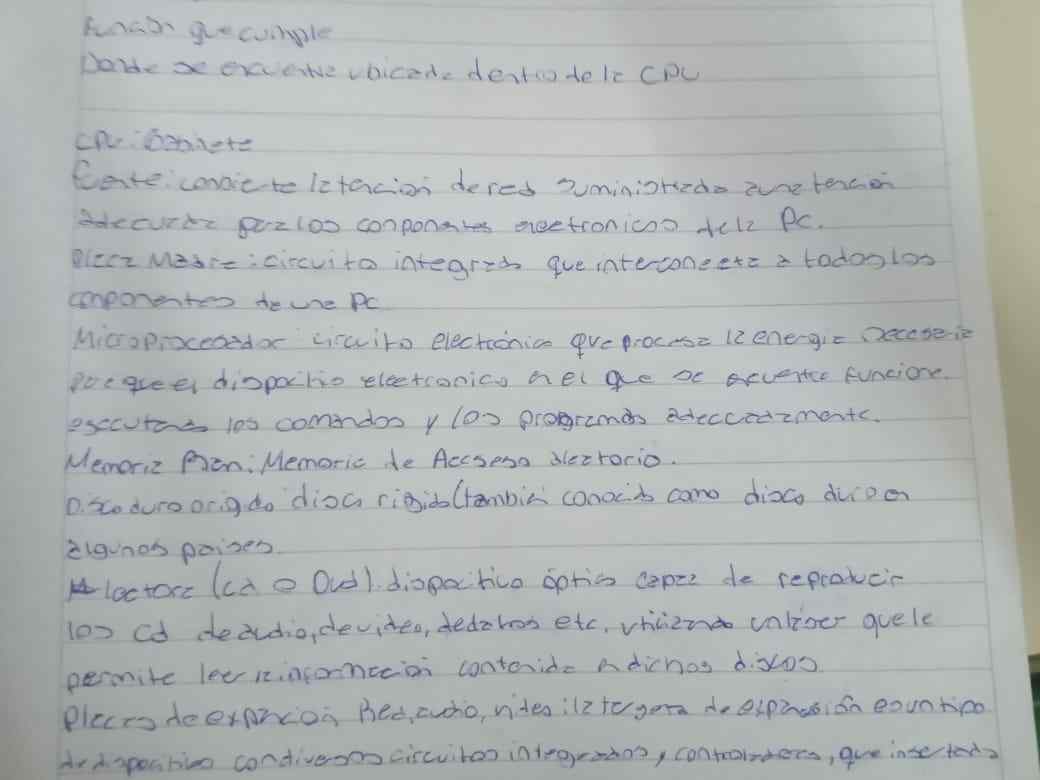 Función que cumple
Donde se encuentra ubicada dentro de la CPU
CPU: Gabinete
Fuente: convierte la tencion de red suministrada a una tencion
adecuada para los componentes electronicos de la PC.
Placa Madre: circuito integrado que interconecta a todos los
componentes de una PC
Microprocesador circuito electrónico que procesa la energia necesaria
para que el dispocitio electronico en el que se encuentra funcione.
los comandos y los programas adeccadamente.
Memoria Ram: Memoria de Accseso aleatorio.
Disco duro o rigido disco rigido (también conocido como disco duro en
algunos paises.
lectora (cd o Dvd). dispocitivo óptico capaz de reproducir
los cd de audio, de video, de datos etc, utilizando un láser que le
permite leer la informacion contenida en dichos discos
Placas de expancion Red, audio, video: la targeta de expansión es un tipo
de dispocitivo con diversos circuitos integrados, y controladores, que insertada